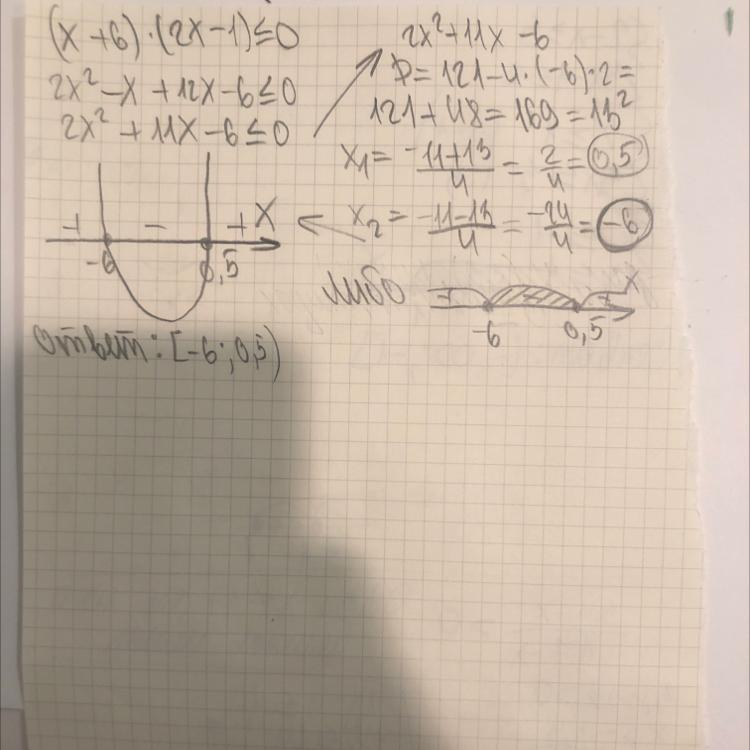 (x+6)·(2x-1)≤0
2x²-x+12x-6≤0
2x²+11x-6≤0
2x²+11x-6
D=121-4·(-6)·2=
121+48=169=13²
x₁= (-11+13)/4 = 2/4 = 0,5
x₂= (-11-13)/4 = -24/4 = -6
+ - + X
-6 0,5
либо
+ + X
-6 0,5
ответ: [-6; 0,5)